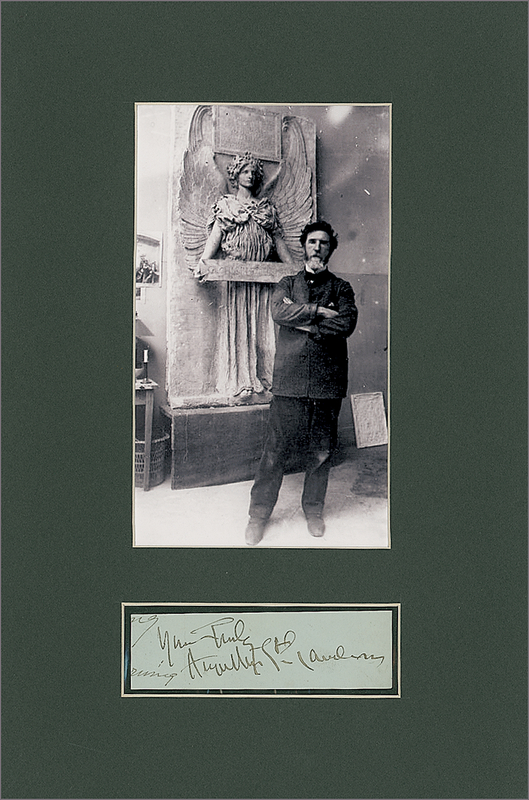 Yours Truly
Augustus St Gaudens